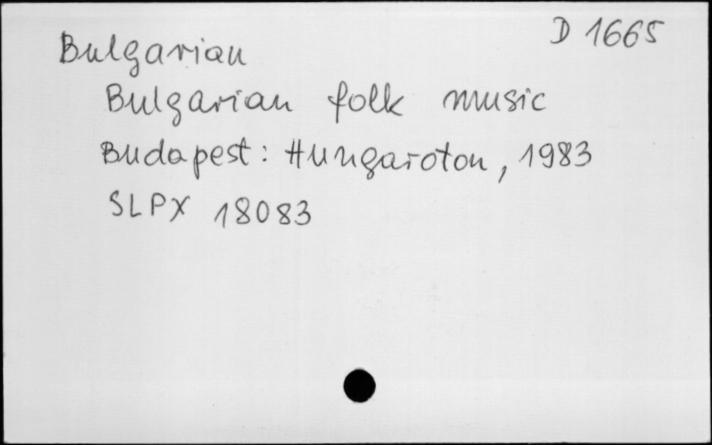 D 1665
Bulgarian
Bulgarian folk music
Budapest: Hungaroton, 1983
SLPX 18083